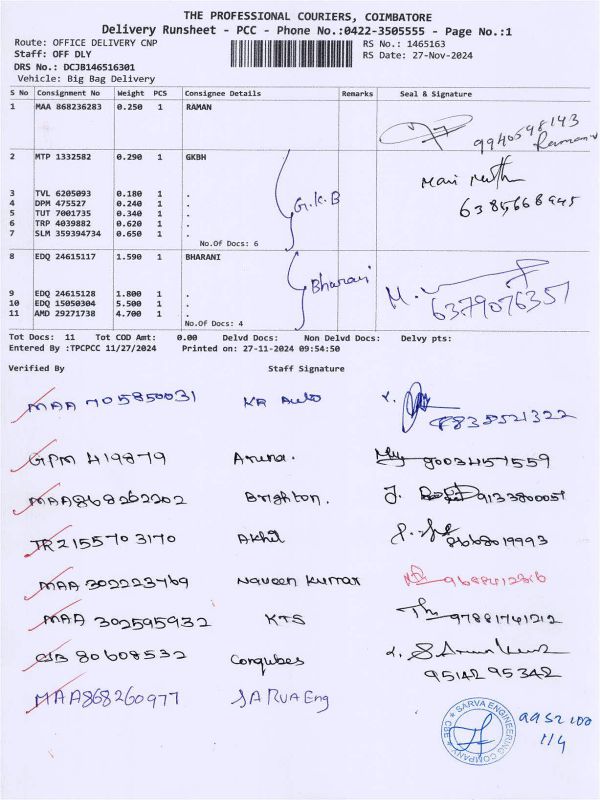 THE PROFESSIONAL COURIERS, COIMBATORE
Delivery Runsheet - PCC - Phone No.:0422-3505555 - Page No.:1
Route: OFFICE DELIVERY CNP RS No.: 1465163
Staff: OFF DLY RS Date: 27-Nov-2024
DRS No.: DCJB146516301
Vehicle: Big Bag Delivery
S No Consignment No Weight PCS Consignee Details Remarks Seal & Signature
1 MAA 868236283 0.250 1 RAMAN
9940598143
Raman
2 MTP 1332582 0.290 1 GKBH
Mari Muthu
3 TVL 6205093 0.180 1 .
4 DPM 475527 0.240 1 . G.K.B 6385668945
5 TUT 7001735 0.340 1 .
6 TRP 4039882 0.620 1 .
7 SLM 359394734 0.650 1 .
No.Of Docs: 6
8 EDQ 24615117 1.590 1 BHARANI
Bharani
9 EDQ 24615128 1.800 1 . M. 6379076357
10 EDQ 15050304 5.500 1 .
11 AMD 29271738 4.700 1 .
No.Of Docs: 4
Tot Docs: 11 Tot COD Amt: 0.00 Delvd Docs: Non Delvd Docs: Delvy pts:
Entered By :TPCPCC 11/27/2024 Printed on: 27-11-2024 09:54:50
Verified By Staff Signature
MAA 705850031 KR Auto 8838521322
GPM 419879 Aruna. 9003457559
MAA868262202 Brighton. J. 9133800057
TR2155703170 Akhil 8668019993
MAA 302223769 Naveen Kumar
MAA 302595932 KTS 97881741212
CJB 80608532 Corqubes
95142 95342
MAA868260977 SARVA Eng
SARVA ENGINEERING COMPANY ★ CBE ★
9952100
114